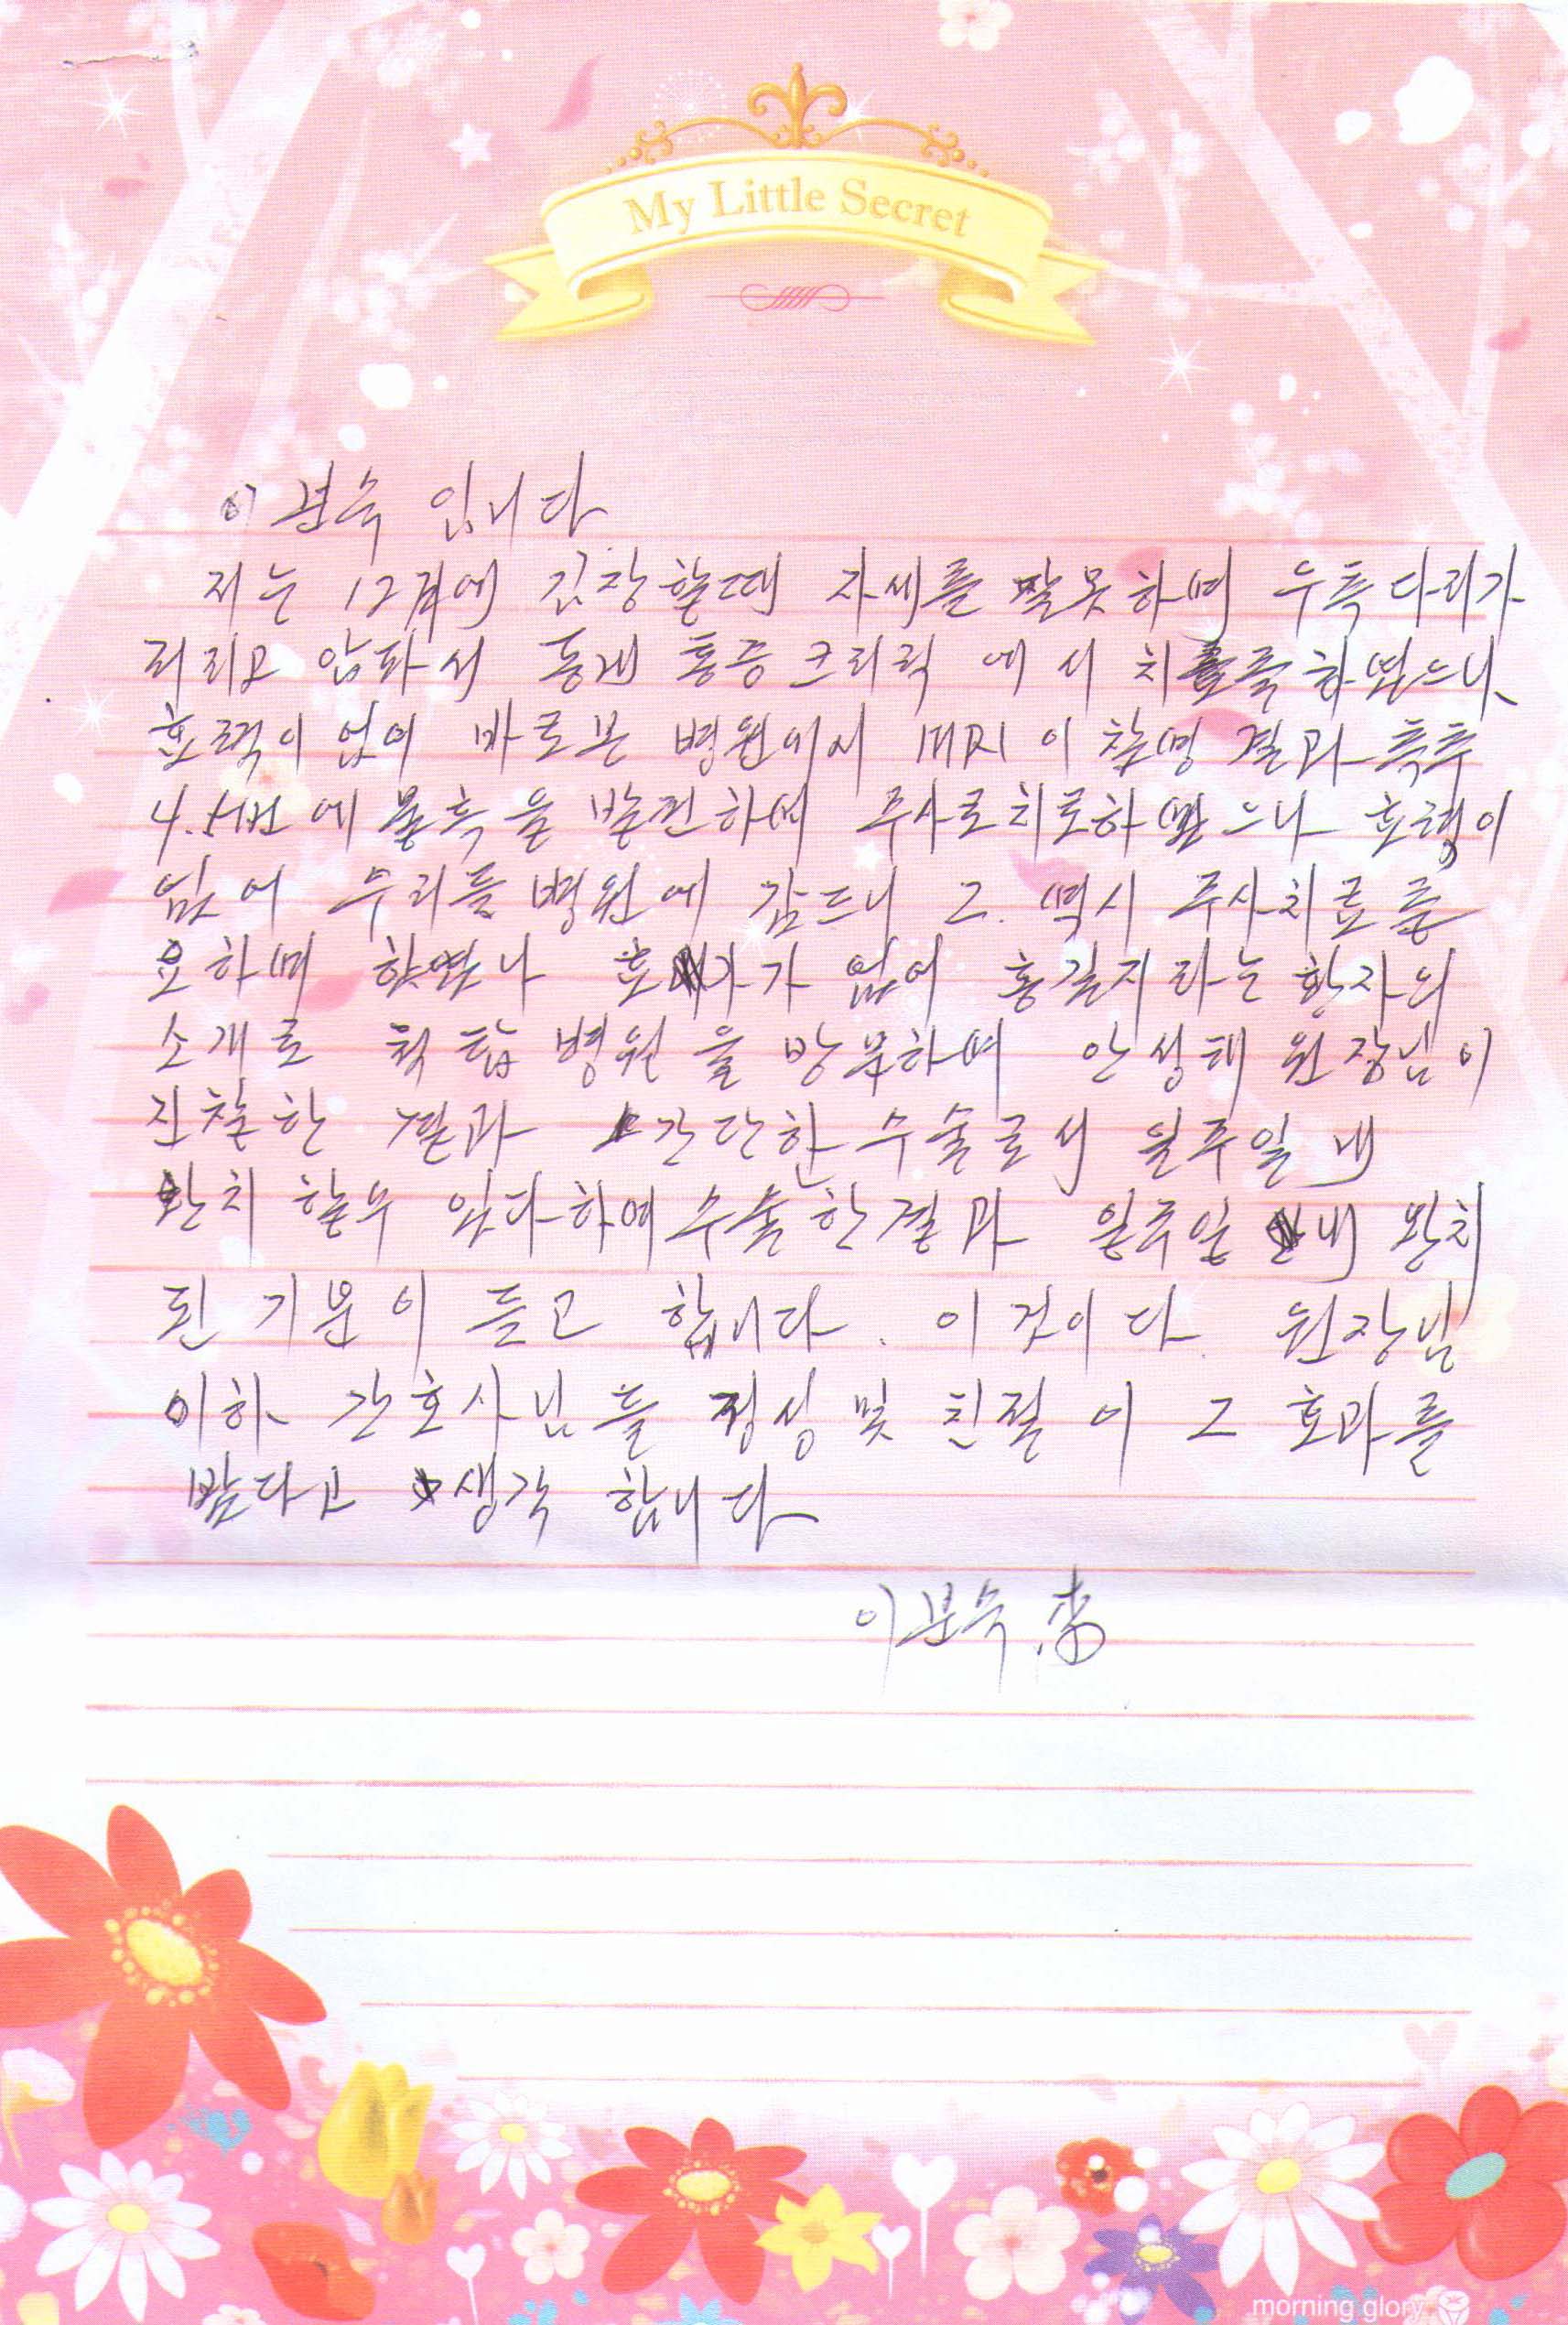 My Little Secret
이분숙 입니다
저는 12월에 김장할때 자세를 잘못하여 우측다리가
저리고 압파서 동네 통증크리릭 에서 치료를하였으나
효력이 없어 바로본 병원에서 MRI 이촬영 결과 척추
4.5번에 돌출을 발견하여 주사로치료하였으나 효력이
없어 우리들병원에 감드니 그. 역시 주사치료를
요하며 하였나 효과가 없어 홍길지라는 환자의
소개로 척탑병원을 방문하여 안성태 원장님이
진찰한 결과 간단한 수술로서 일주일 내
완치 할수 있다하여 수술한결과 일주일 내 완치
된 기분이 들고 합니다. 이것이다. 원장님
이하 간호사님들 정성 및 친절이 그 효과를
밨다고 생각 합니다
이분숙
morning glory